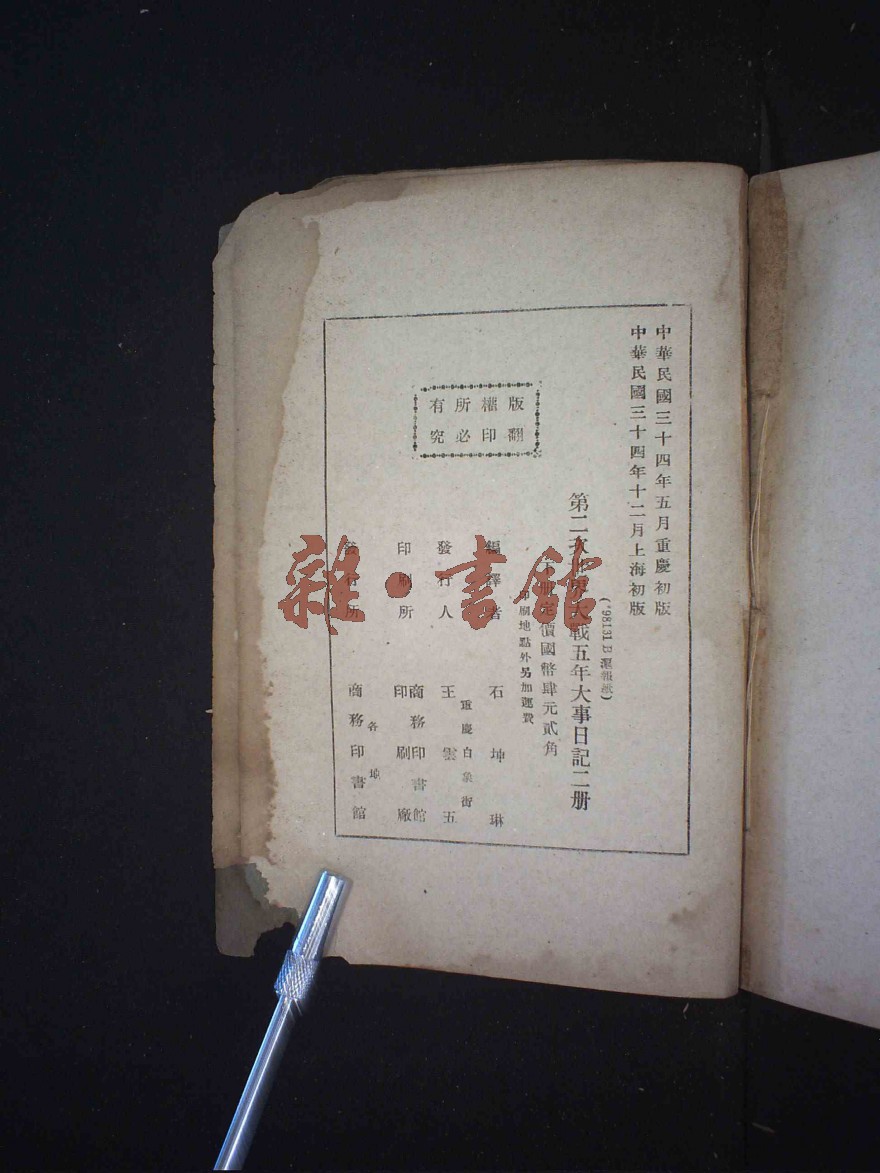 中華民國三十四年五月重慶初版
中華民國三十四年十二月上海初版
(*98131 B 滬報紙)
第二次世界大戰五年大事日記二册
下册定價國幣肆元貳角
印刷地點外另加運費
版權所有
翻印必究
編譯者 石坤琳
重慶白象街
發行人 王雲五
印刷所 商務印書館印刷廠
各地
發行所 商務印書館
雜·書館